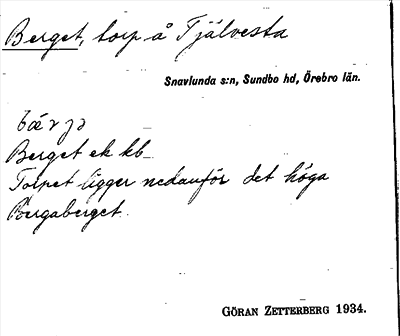 Berget, torp å Tjälvesta
Snavlunda s:n, Sundbo hd, Örebro län.
bæ̀rjə
Berget ek kb
Torpet ligger nedanför det höga
Bergaberget.
GÖRAN ZETTERBERG 1934.